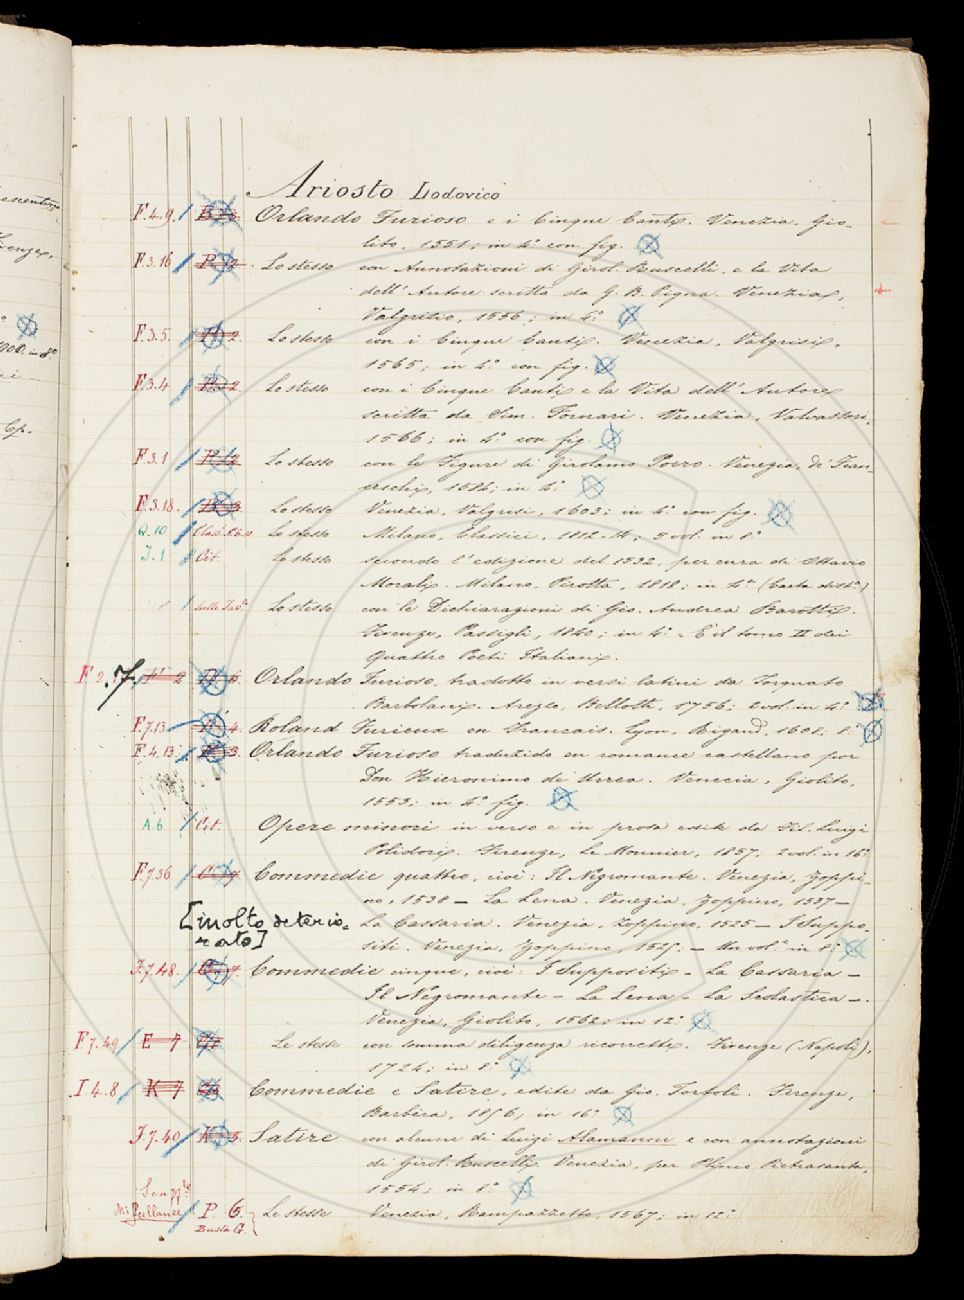 Ariosto Lodovico
F.4.9. Orlando Furioso e i Cinque Canti. Venezia, Gio-
lito, 1551; in 4.º con fig.
F.3.16 Lo stesso con Annotazioni di Girol. Ruscelli, e la Vita
dell' Autore scritta da G. B. Pigna. Venezia,
Valgrisio, 1556; in 4.º
F.3.5. Lo stesso con i Cinque Canti. Venezia, Valgrisi,
1565, in 4.º con fig.
F.3.4 Lo stesso con i Cinque Canti e la Vita dell' Autore
scritta da Sim. Fornari. Venezia, Valvassori,
1566; in 4.º con fig.
F.3.1 Lo stesso con le Figure di Girolamo Porro. Venezia, de' Fran-
ceschi, 1584; in 4.º
F.3.18. Lo stesso Venezia, Valgrisi, 1603; in 4.º con fig.
Q.10 Lo stesso Milano, Classici, 1812-14; 5 vol. in 8.º
I.1 Cit. Lo stesso secondo l' edizione del 1532, per cura di Ottavio
Morali. Milano, Pirotta, 1818; in 4.º
Lo stesso con le Dichiarazioni di Gio. Andrea Barotti.
Firenze, Passigli, 1840; in 4.º È il tomo II dei
Quattro Poeti Italiani.
F 2 Orlando Furioso, tradotto in versi latini da Torquato
Barbolani. Arezzo, Bellotti, 1756; 2 vol. in 4.º
F.7.13 Roland Furieux en Francais. Lyon, Rigaud, 1608. 8.º
F.4.13. Orlando Furioso traduzido en romance castellano por
Don Hieronimo de Urrea. Venecia, Giolito,
1553; in 4.º fig.
A.6 Cit. Opere minori in verso e in prosa edite da Fil. Luigi
Polidori. Firenze, Le Monnier, 1857; 2 vol. in 16.º
F.7.36 Commedie quattro, cioè: Il Negromante. Venezia, Zoppi-
no, 1538 — La Lena. Venezia, Zoppino, 1537 —
[molto deterio- La Cassaria. Venezia, Zoppino, 1525 — I Suppo-
rato] siti. Venezia, Zoppino, 1525. — Un vol. in 8.º
F.7.48. Commedie cinque, cioè: I Suppositi - La Cassaria —
Il Negromante - La Lena - La Scolastica —.
Venezia, Giolito, 1562; in 12.º
F7.49 E 7 Le stesse con somma diligenza ricorrette. Firenze (Napoli),
1724; in 8.º
I.4.8 K 7 Commedie e Satire, edite da Gio. Tortoli. Firenze,
Barbèra, 1856; in 16.º
F.7.40 Satire con alcune di Luigi Alamanni e con annotazioni
di Girol. Ruscelli. Venezia, per Plinio Pietrasanta,
1554; in 8.º
Miscellanee P. 6. Le stesse Venezia, Rampazzetto, 1567; in 12.º
Busta G.